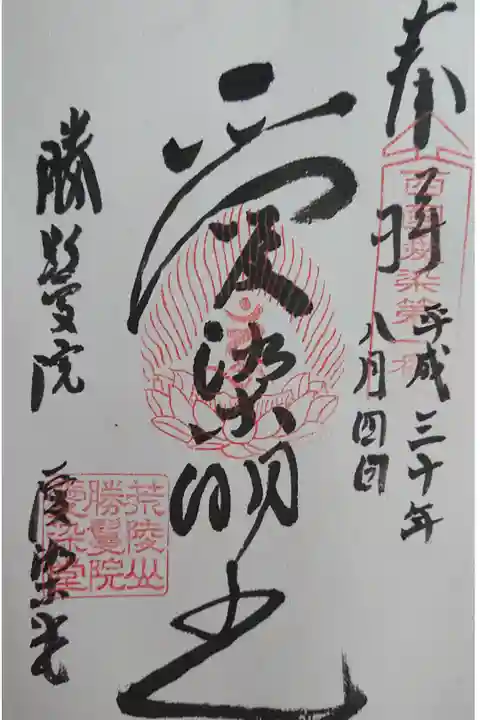 奉拝
平成三十年
八月四日
愛染明王
勝鬘院
愛染堂
西国愛染第一番
荒陵山
勝鬘院
愛染堂